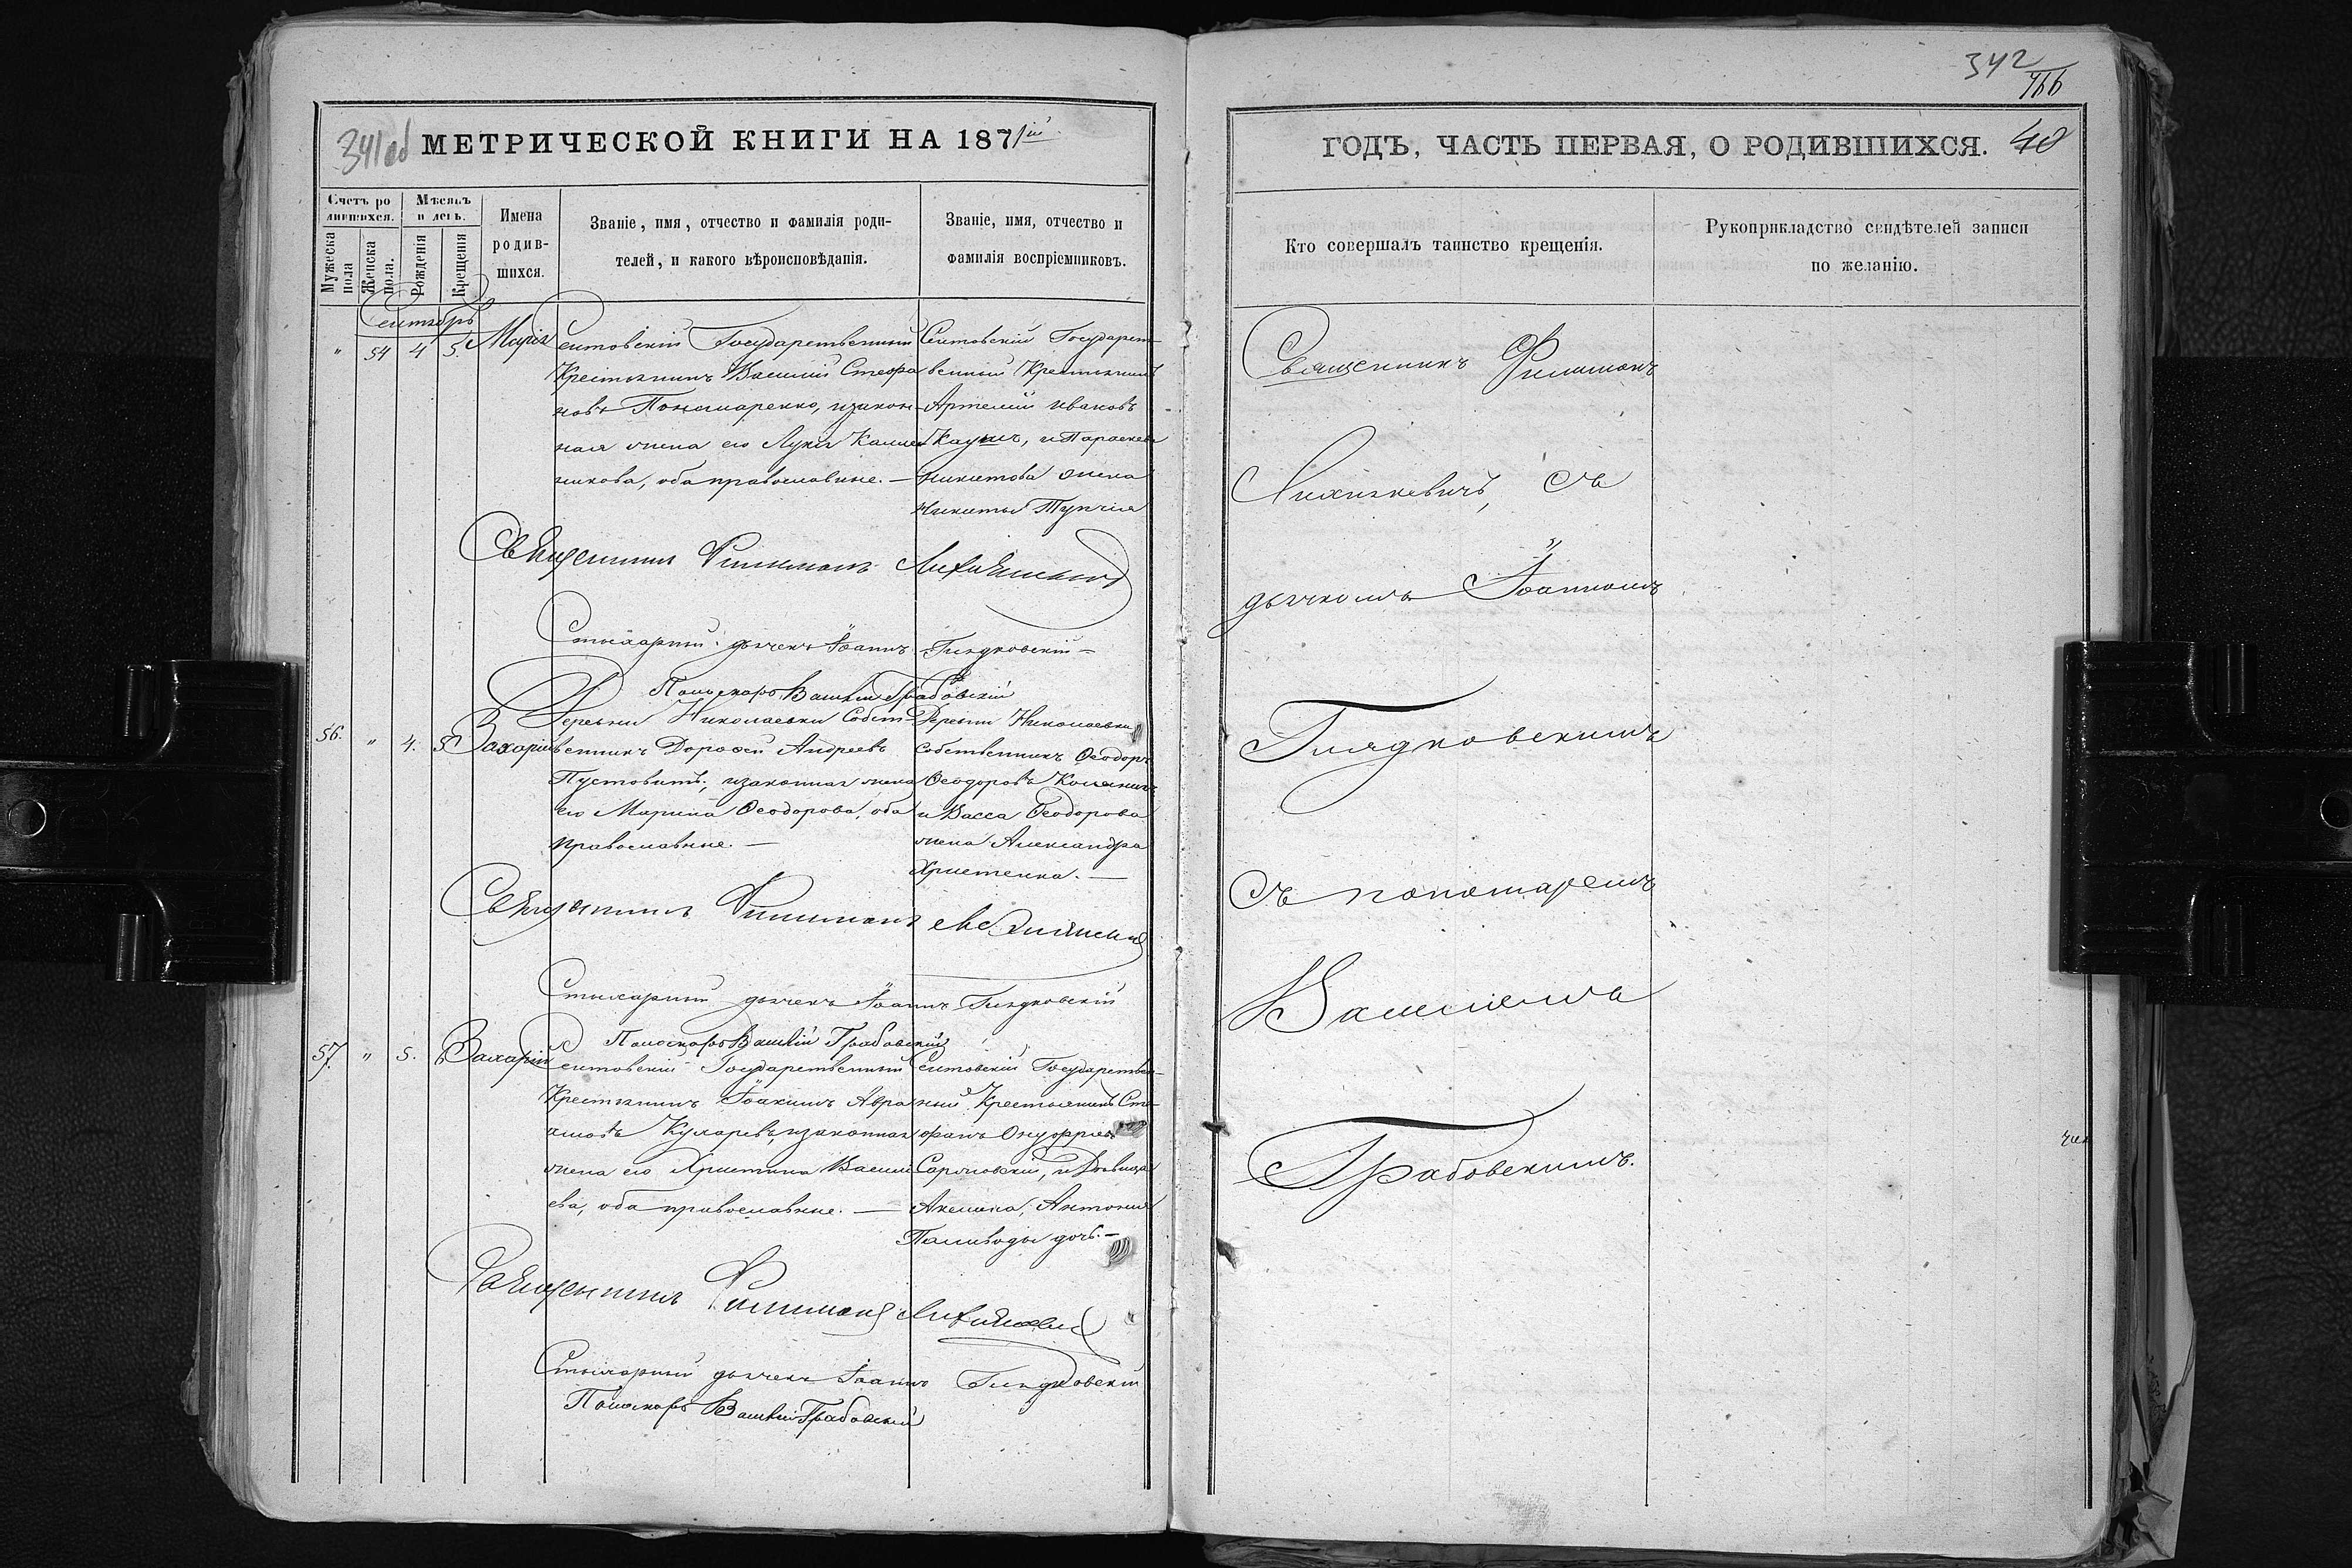 341об МЕТРИЧЕСКОЙ КНИГИ НА 1871й
Счетъ ро
дившихся.
Мѣсяцъ
и день.
Мужеска
пола
Женска
пола.
Рожденія
Крещенія
Имена
родив-
шихся.
Званіе, имя, отчество и фамилія роди-
телей, и какого вѣроисповѣданія.
Званіе, имя, отчество и
фамилія воспріемниковъ.
Сентябрь
" 54 4 5. Марія
Сентовскій Государственный
Крестьянинъ Василій Стефа
новъ Пономаренко, и закон-
ная жена его Лукія
никова, оба православные. —
Сентовскій Государст-
венный Крестьянинъ
Артемій Ивановъ
и Параскева
Никитова жена
Никиты
Священникъ Филимонъ
Стихарный дьячекъ Іоаннъ Гладковскій —
Пономарь Василій Грабовскій
56. " 4. 5 Захарій
Деревни Николаевки Собст-
венникъ Дороѳей Андреевъ
Пустовитъ, и законная жена
его Марина Ѳеодорова, оба
православные. —
Деревни Николаевки
собственникъ Ѳеодоръ
Ѳеодоровъ
и Васса Ѳеодорова
жена Александра
Христенка. —
Священникъ Филимонъ
Стихарный дьячекъ Іоаннъ Гладковскій
Пономарь Василій Грабовскій
57. " 5. 6 Захарій
Сентовскій Государственный
Крестьянинъ Іоакимъ Авра
амовъ Кухаревъ, и законная
жена его Христина Васили
ева, оба православные. —
Сентовскій Государствен-
ный Крестьянинъ Сте-
фанъ Онуфріевъ
и дѣвица
Акелина, Антонія
Паливоды дочь. —
Священникъ Филимонъ
Стихарный дьячекъ Іоаннъ Гладковскій
Пономарь Василій Грабовскій
342
ГОДЪ, ЧАСТЬ ПЕРВАЯ, О РОДИВШИХСЯ. 40
Кто совершалъ таинство крещенія.
Рукоприкладство свидѣтелей записи
по желанію.
Священникъ Филимонъ
Лихнякевичъ, съ
дьячкомъ Іоанномъ
Гладковскимъ
съ пономаремъ
Василіемъ
Грабовскимъ.